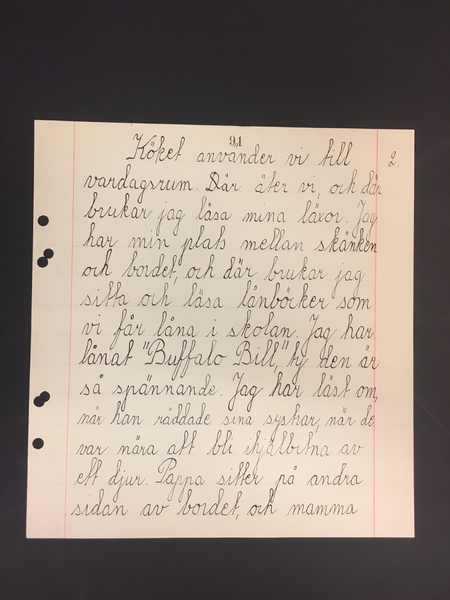 91
Köket använder vi till 2
vardagsrum. Där äter vi, och där
brukar jag läsa mina läxor. Jag
har min plats mellan skänken
och bordet, och där brukar jag
sitta och läsa lånböcker som
vi får låna i skolan. Jag har
lånat "Buffalo Bill," ty den är
så spännande. Jag har läst om,
när han räddade sina syskar, när de
var nära att bli ihjälbitna av
ett djur. Pappa sitter på andra
sidan av bordet, och mamma